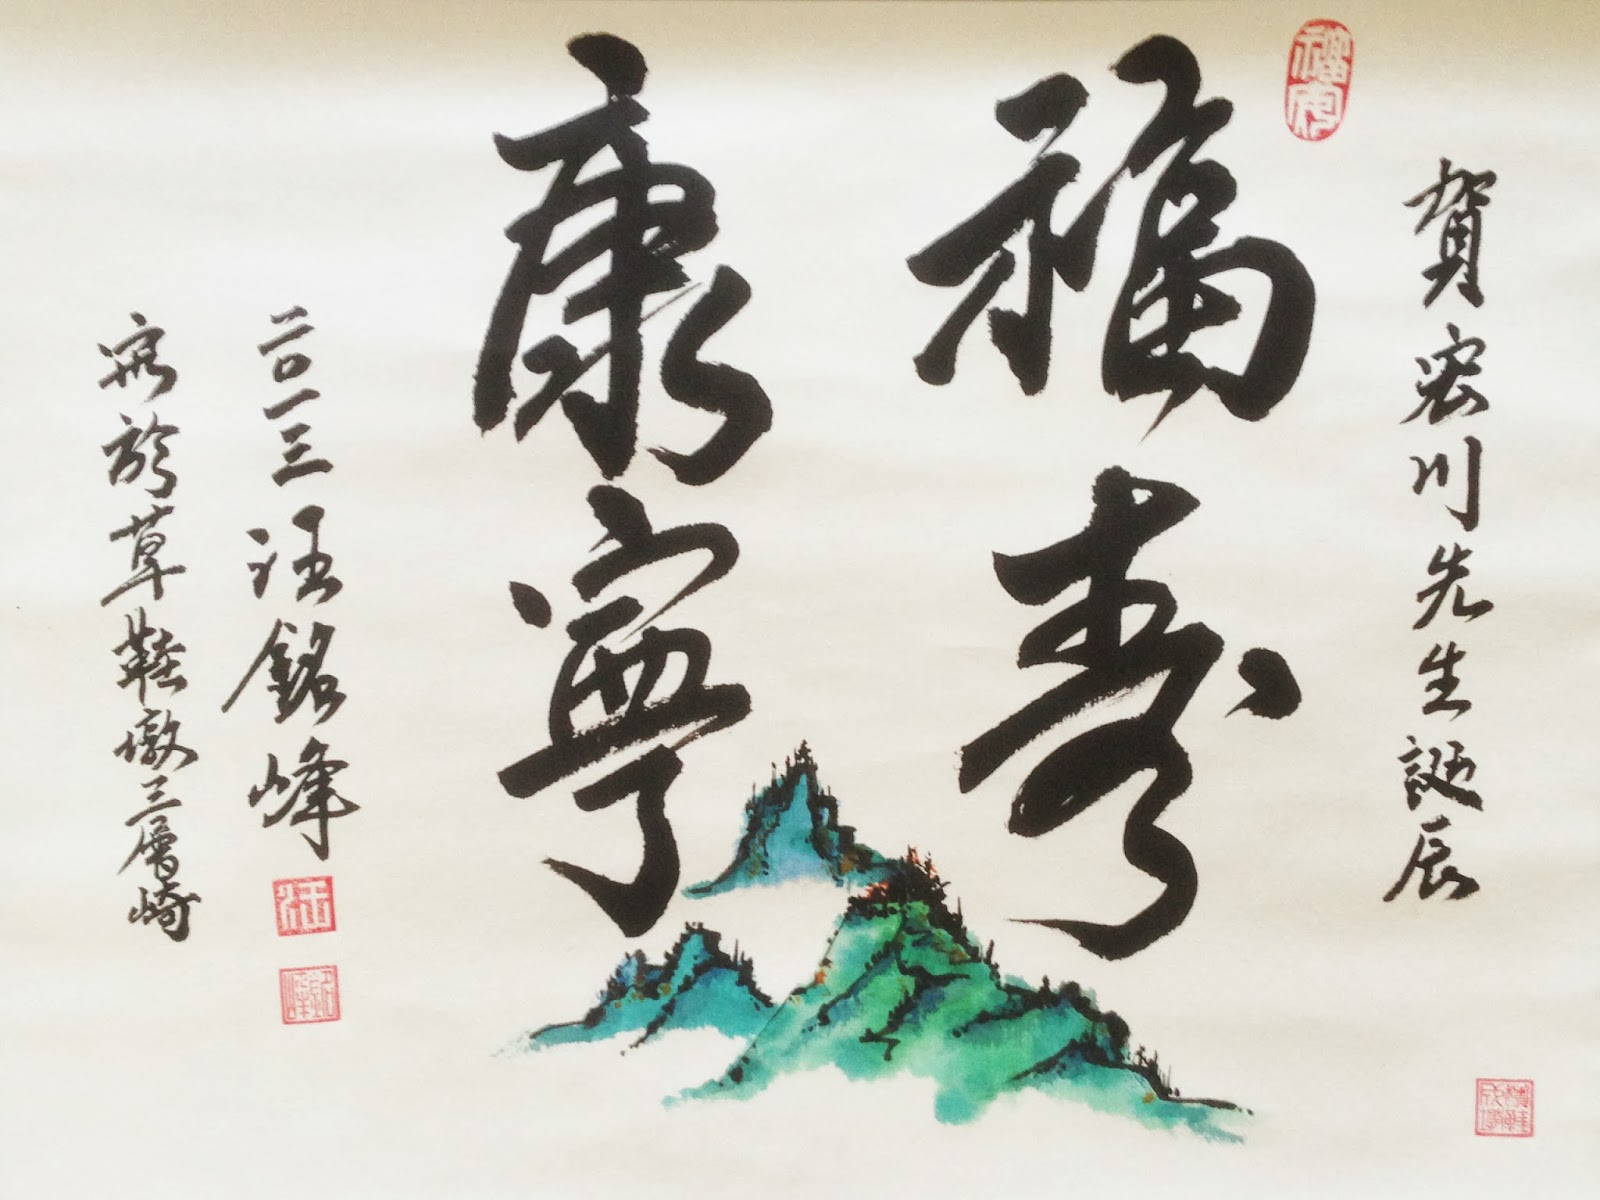 賀宏川先生誕辰
福壽
康寧
二〇一三汪銘峰
寫於草鞋墩三層崎
汪
銘峰